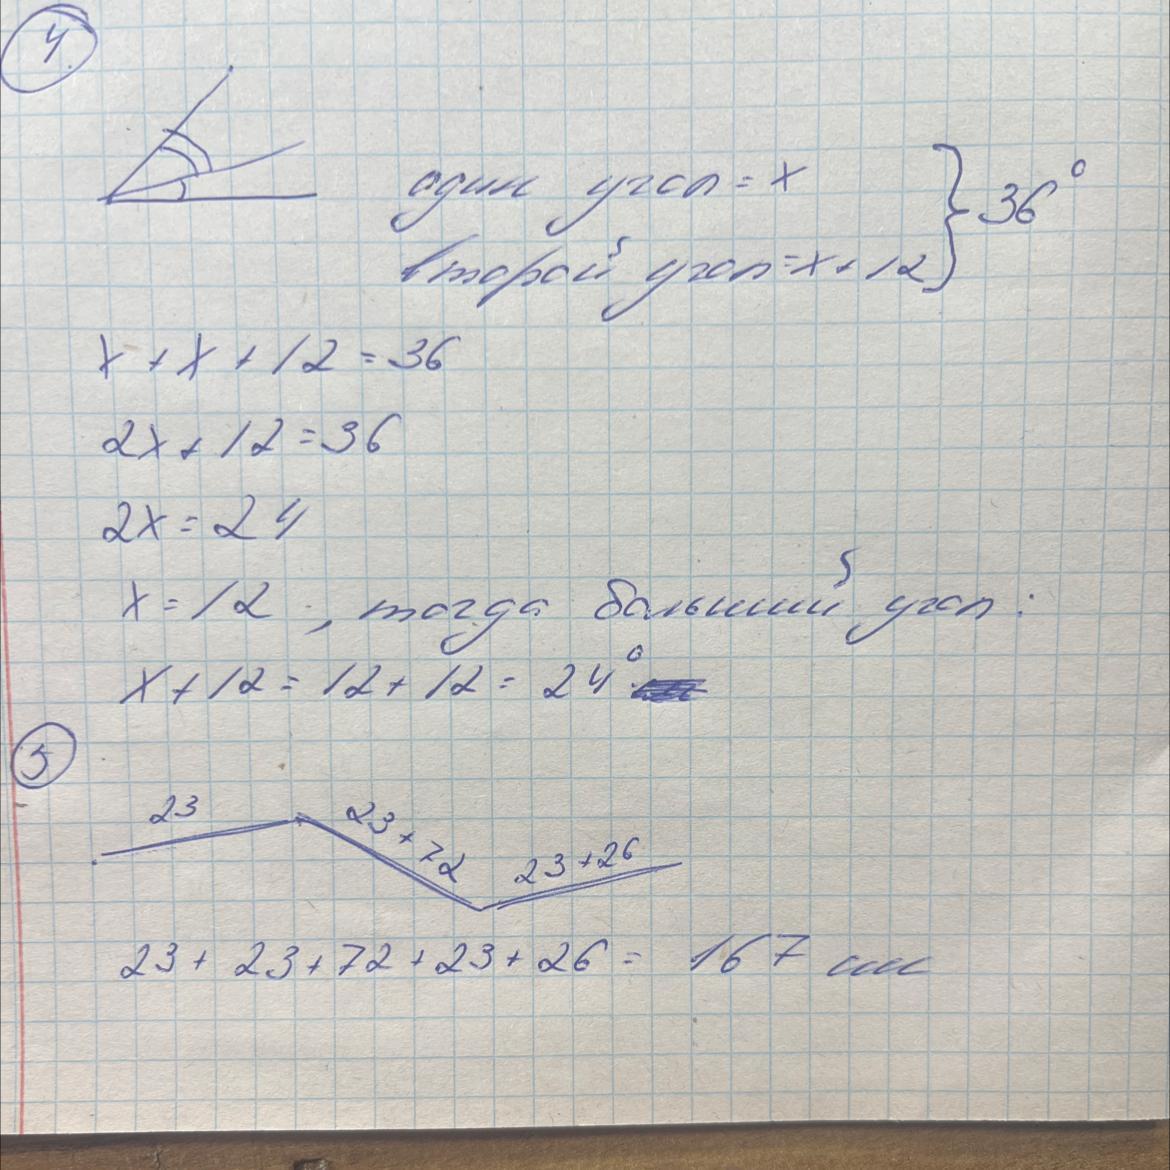 4
один угол = x
второй угол = x + 12
36°
x + x + 12 = 36
2x + 12 = 36
2x = 24
x = 12, тогда больший угол:
x + 12 = 12 + 12 = 24°
5
23
23 + 72
23 + 26
23 + 23 + 72 + 23 + 26 = 167 см